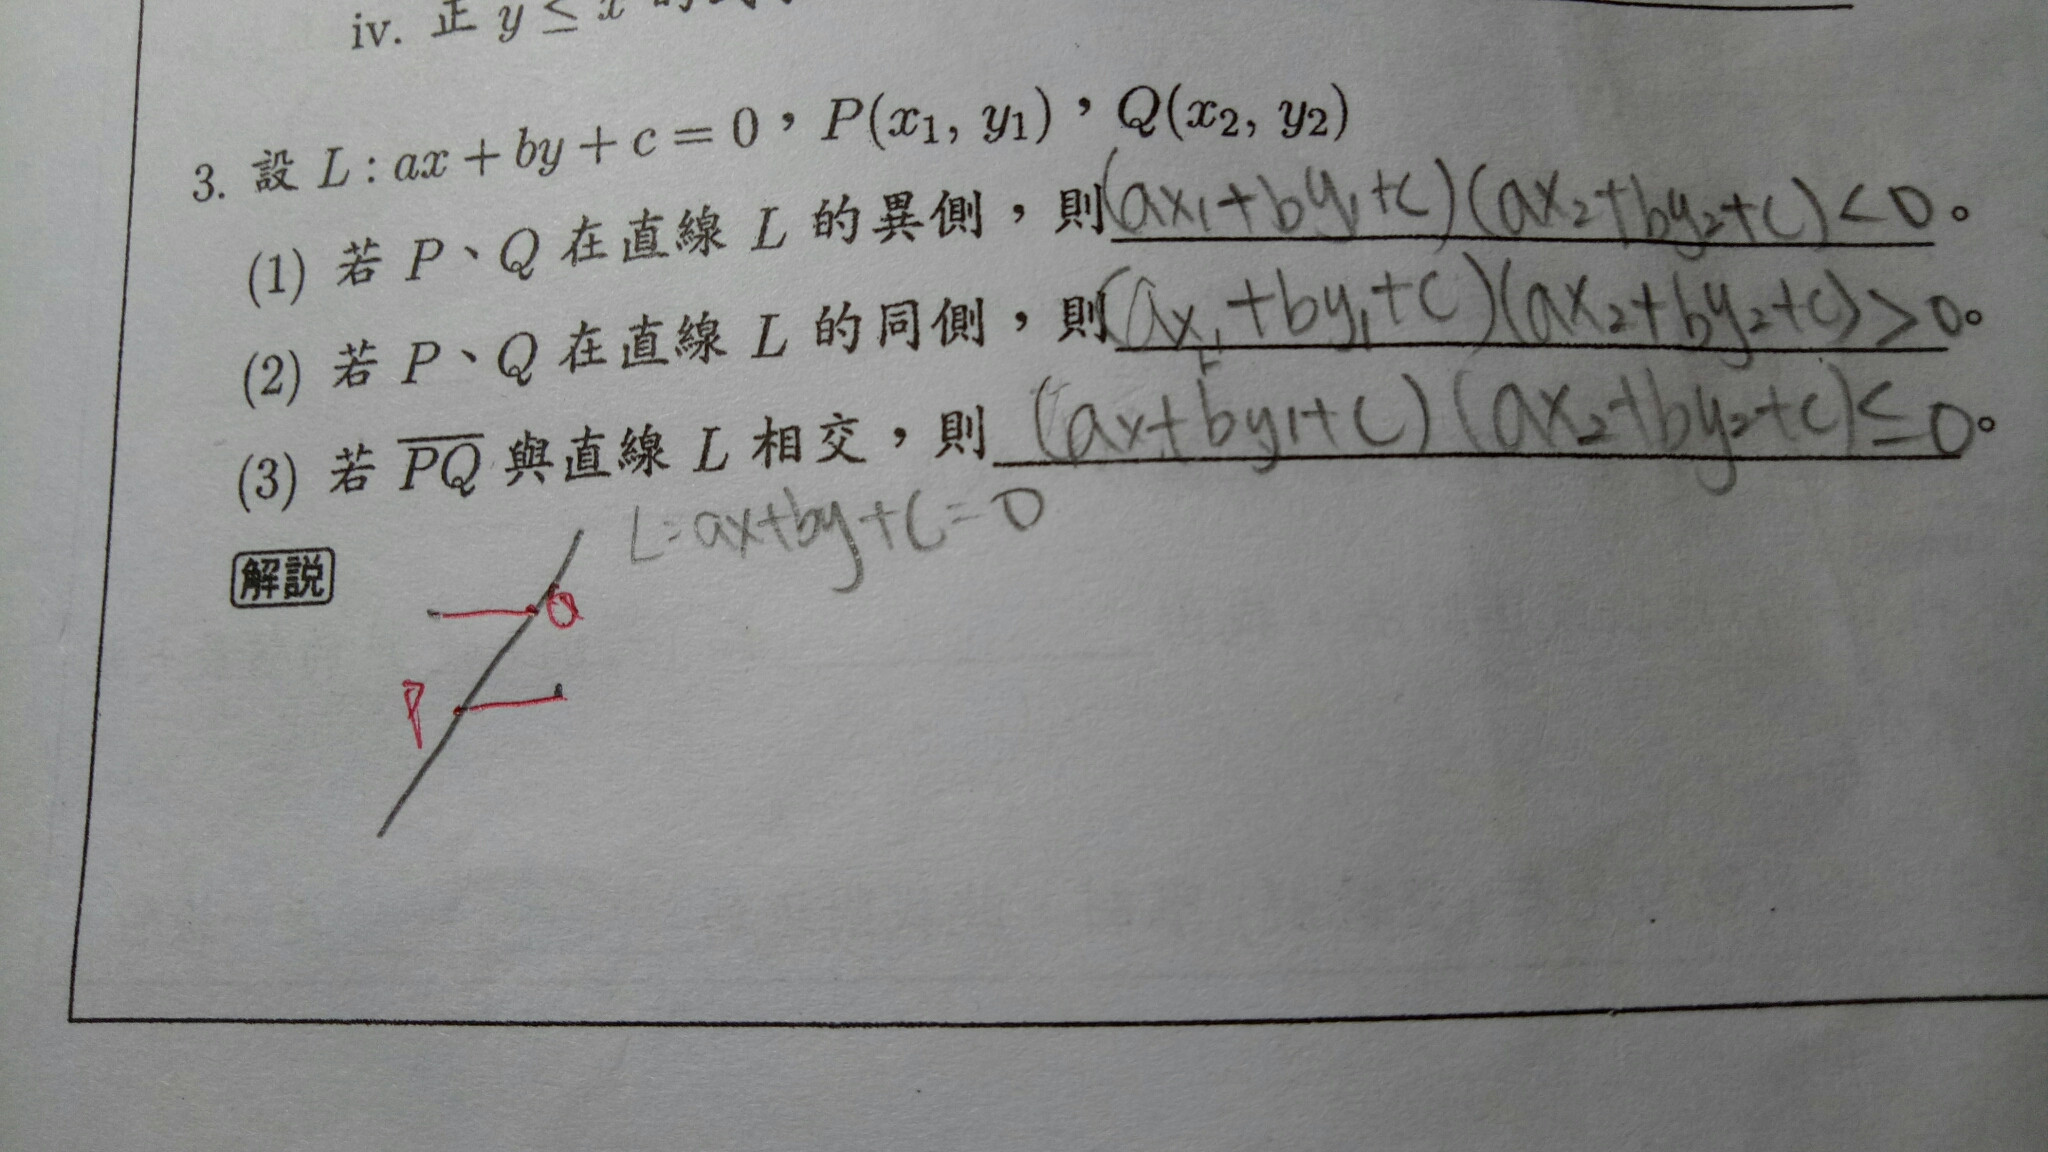 iv. 正 y ≤ x 的
3. 設 L : ax + by + c = 0，P(x₁, y₁)，Q(x₂, y₂)
(1) 若 P、Q 在直線 L 的異側，則(ax₁+by₁+c)(ax₂+by₂+c)<0。
(2) 若 P、Q 在直線 L 的同側，則(ax₁+by₁+c)(ax₂+by₂+c)>0。
(3) 若 P̅Q̅ 與直線 L 相交，則 (ax+by₁+c)(ax₂+by₂+c)≤0。
L=ax+by+c=0
解説
Q
P